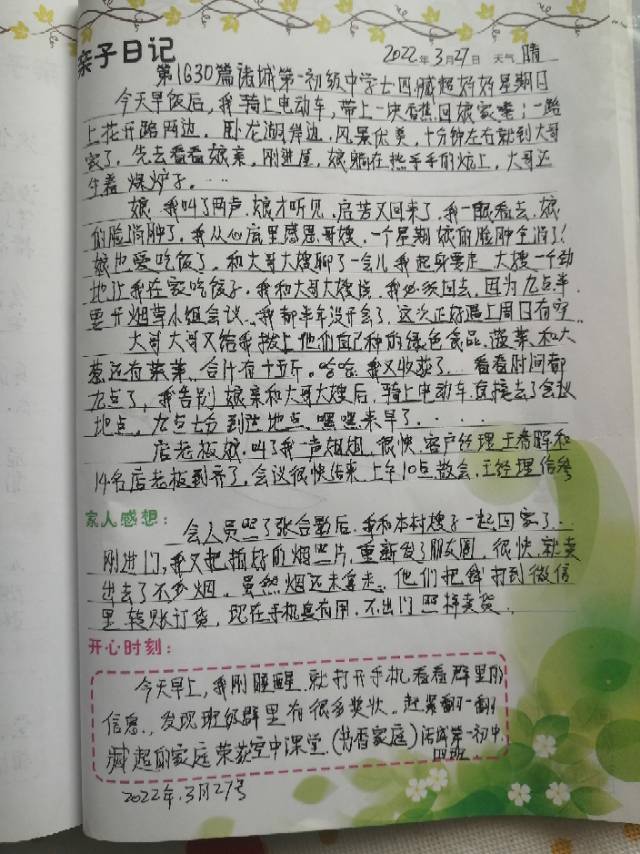 亲子日记
2022年3月27日 天气 晴
第1630篇诸城第一初级中学七四臧超好好星期日
今天早饭后,我骑上电动车,带上一块香蕉回娘家喽;一路
上花开路两边,卧龙湖岸边,风景优美,十分钟左右就到大哥
家了,先去看看娘亲,刚进屋,娘躺在热乎乎的炕上,大哥还
生着煤炉子。……
娘,我叫了两声,娘才听见,启芳又回来了,我一眼看去,娘
的脸消肿了,我从心底里感恩哥嫂,一个星期娘的脸肿全消了!
娘也爱吃饭了,和大哥大嫂聊了一会儿我起身要走,大嫂一个劲
地让我在家吃饺子,我和大哥大嫂说,我必须回去,因为九点半
要开烟草小组会议,我都半年没开会了,这次正好遇上周日有空
大哥大哥又给我拔上他们自己种的绿色食品,菠菜,和大
葱还有菜,合计有十五斤。哈哈,我又收获了……看看时间都
九点了,我告别娘亲和大哥大嫂后,骑上电动车,直接去了会议
地点,九点十分到达地点,嘿嘿,来早了.....
店老板娘,叫了我一声姐姐,很快,客户经理王春晖和
14名店老板到齐了,会议很快结束,上午10点散会,王经理信参
家人感想:
会人员照了张合影后,我和本村嫂子一起回家了..
刚进门,我又把拍好的烟照片,重新发了朋友圈,很快就卖
出去了不少烟,虽然烟还未拿走,他们把钱打到微信
里转账订货,现在手机真有用,不出门照样卖货。
开心时刻:
今天早上,我刚睡醒,就打开手机看看群里的
信息,发现班级群里有很多奖状,赶紧翻一翻
臧超的家庭荣获空中课堂(书香家庭)诸城第一初中
四班
2022年.3月27号